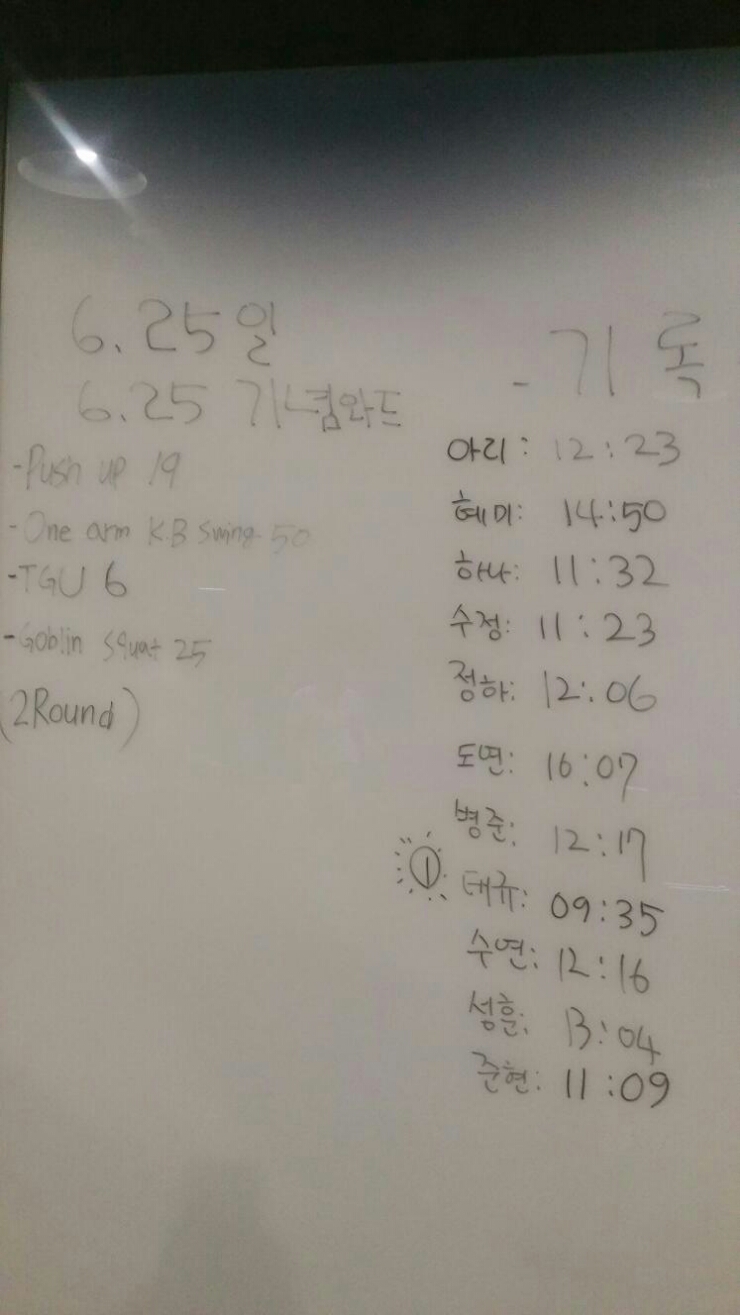 6.25일
6.25 기념와드
-Push up 19
-One arm K.B swing 50
-TGU 6
-Goblin squat 25
(2Round)
- 기록
아리: 12:23
혜미: 14:50
하나: 11:32
수정: 11:23
정하: 12:06
도연: 16:07
병준: 12:17
① 태규: 09:35
수연: 12:16
성훈: 13:04
준현: 11:09